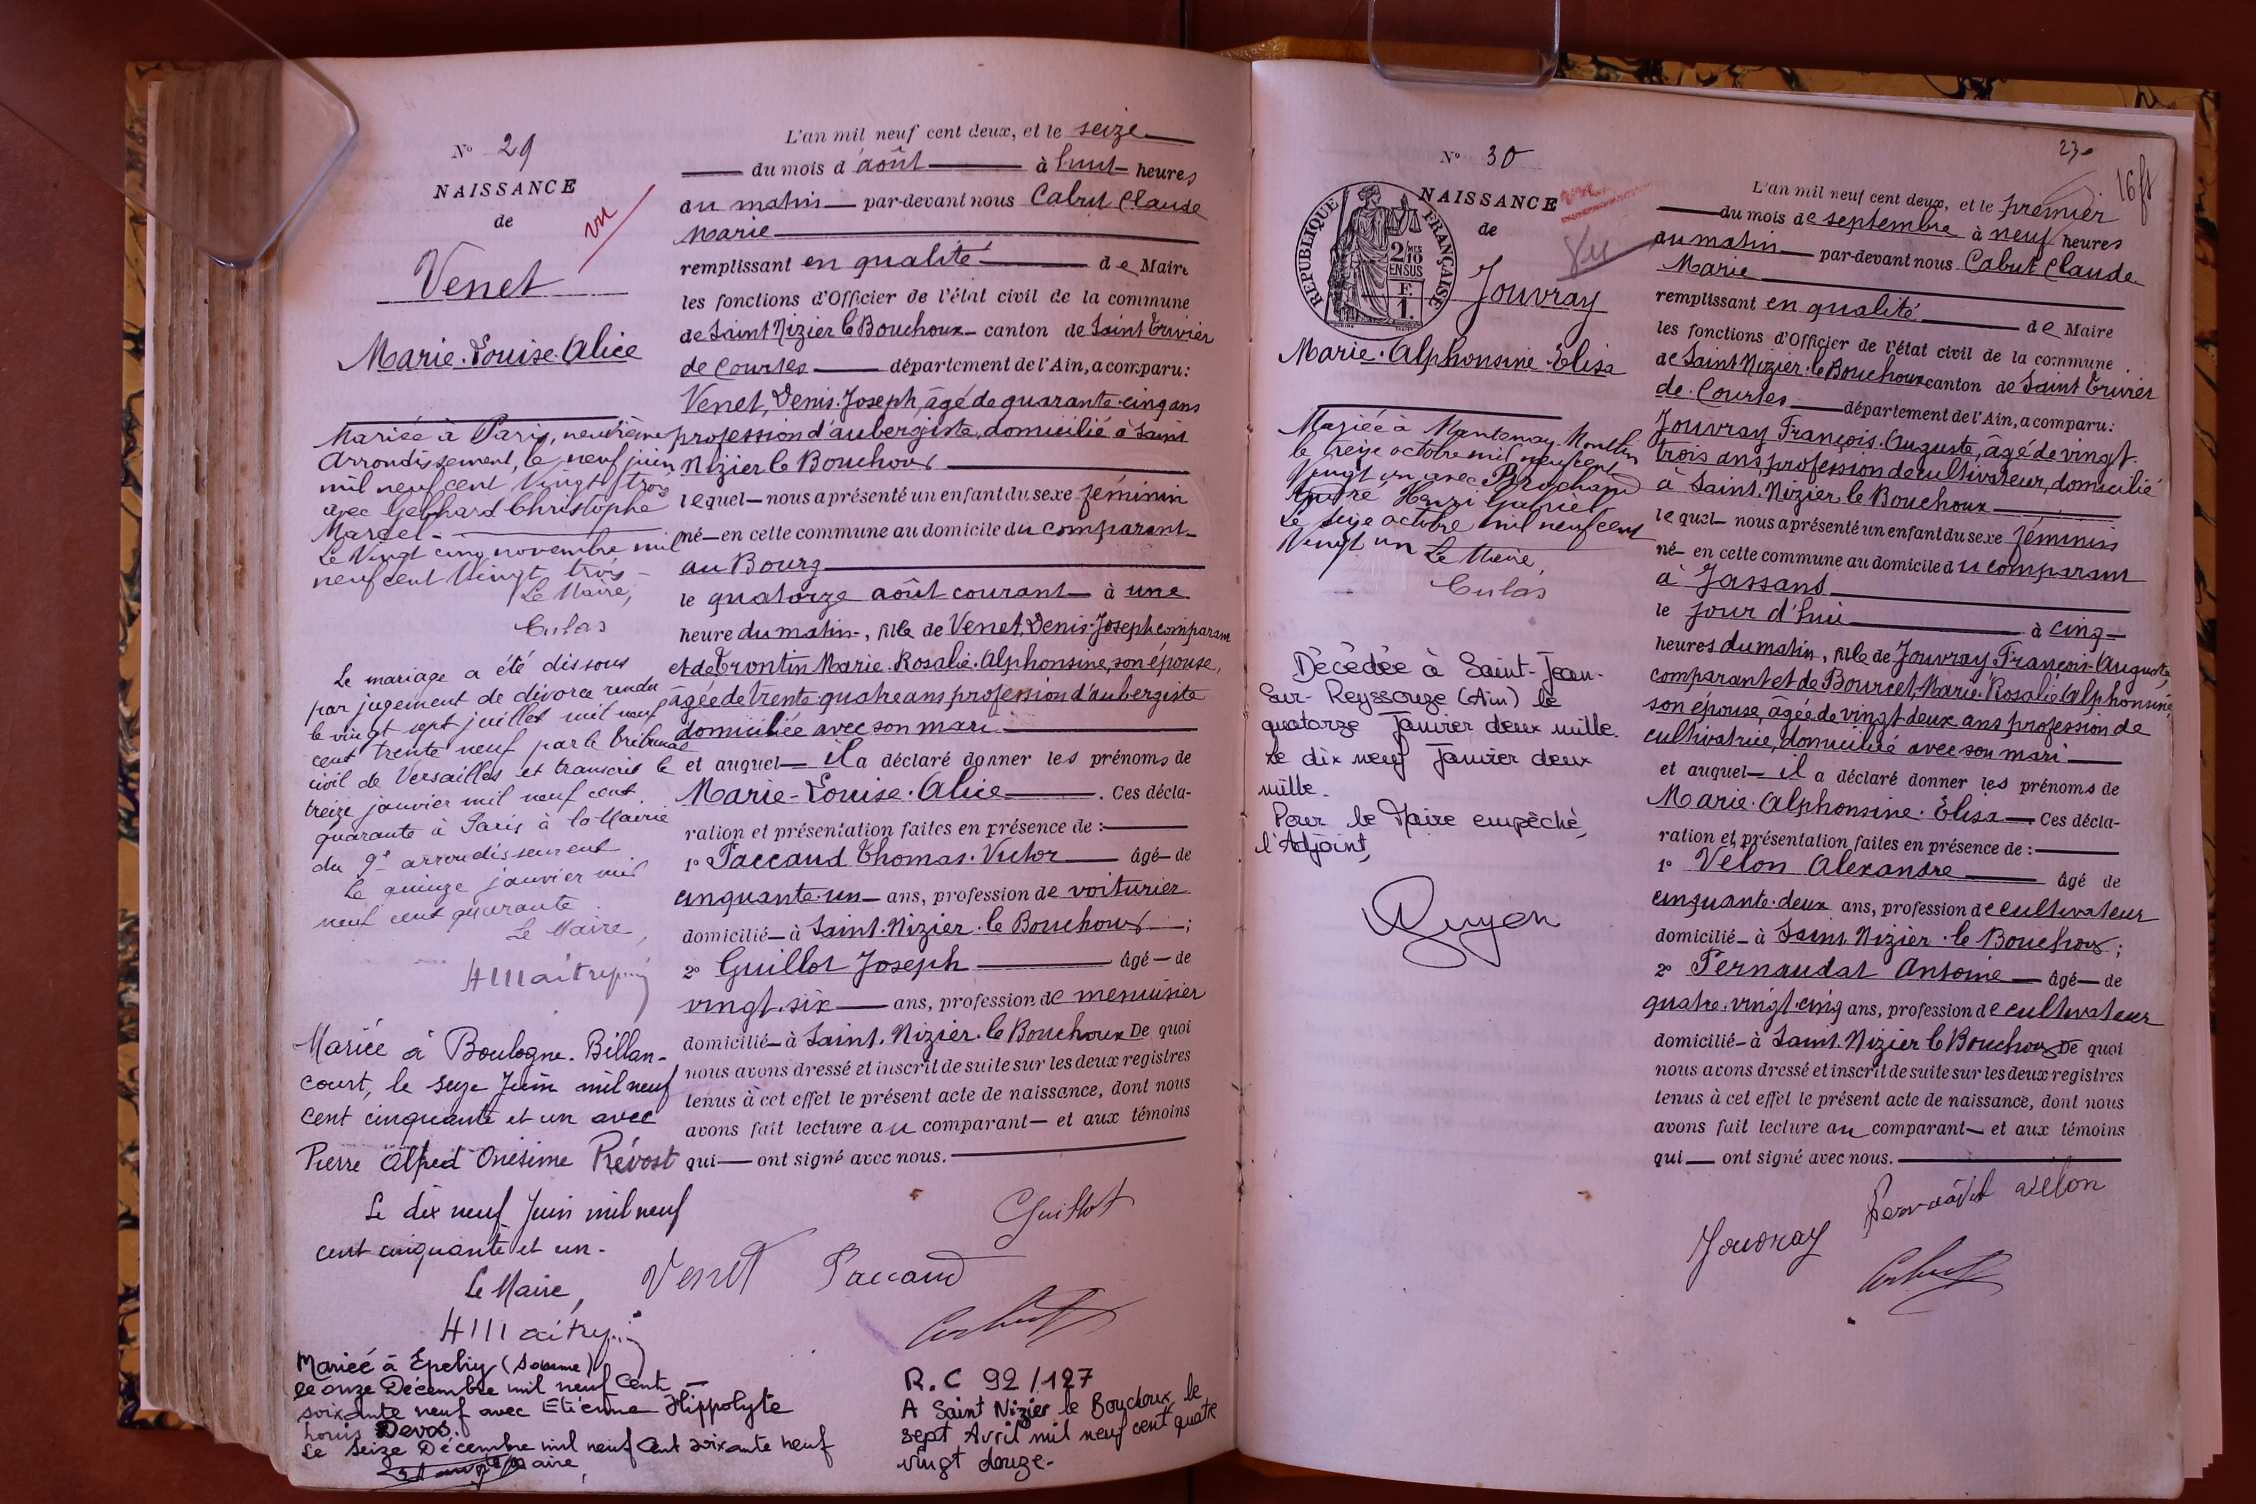 Nº 29
NAISSANCE
de
vu
Venet
Marie-Louise-Alice
Mariée à Paris, neuvième
arrondissement, le neuf juin
mil neuf cent vingt trois
avec Gebhard Christophe
Marcel -
Le Vingt cinq novembre mil
neuf cent vingt trois -
Le Maire,
Culas
Le mariage a été dissous
par jugement de divorce rendu
le vingt sept juillet mil neuf
cent trente neuf par le tribunal
civil de Versailles et transcrit le
treize janvier mil neuf cent
quarante à Paris à la Mairie
du 9e arrondissement
Le quinze janvier mil
neuf cent quarante
Le Maire,
Mariée à Boulogne-Billan-
court, le seize Juin mil neuf
cent cinquante et un avec
Pierre Alfred Onésime Prévost
Le dix neuf Juin mil neuf
cent cinquante et un -
Le Maire,
Mariée à Epehy (Somme)
le onze Décembre mil neuf cent
soixante neuf avec Etienne Hippolyte
Louis Devos.
Le seize Décembre mil neuf cent soixante neuf
Maire,
L'an mil neuf cent deux, et le seize
du mois d'août à huit heures
du matin par-devant nous Cabut Claude
Marie
remplissant en qualité de Maire
les fonctions d'Officier de l'état civil de la commune
de Saint Nizier le Bouchoux canton de Saint Trivier
de Courtes département de l'Ain, a comparu:
Venet, Denis-Joseph, âgé de quarante-cinq ans
profession d'aubergiste, domicilié à Saint
Nizier le Bouchoux
lequel nous a présenté un enfant du sexe féminin
né en cette commune au domicile du comparant
au Bourg
le quatorze août courant à une
heure du matin, fille de Venet, Denis-Joseph comparant
et de Trontin Marie-Rosalie-Alphonsine, son épouse,
âgée de trente-quatre ans profession d'aubergiste
domiciliée avec son mari
et auquel il a déclaré donner les prénoms de
Marie-Louise-Alice. Ces décla-
ration et présentation faites en présence de :
1º Paccaud Thomas-Victor âgé de
cinquante-un ans, profession de voiturier
domicilié à Saint-Nizier-le Bouchoux ;
2º Guillot Joseph âgé de
vingt-six ans, profession de menuisier
domicilié à Saint-Nizier-le Bouchoux De quoi
nous avons dressé et inscrit de suite sur les deux registres
tenus à cet effet le présent acte de naissance, dont nous
avons fait lecture au comparant et aux témoins
qui ont signé avec nous.
Guillot
Venet Paccaud
Cabut
R.C 92/127
A Saint Nizier le Bouchoux, le
sept Avril mil neuf cent quatre
vingt douze-
23
16 ft
Nº 30
NAISSANCE
de
vu
vu
REPUBLIQUE FRANÇAISE
2/10
EN SUS
F.
1.
Jouvray
Marie-Alphonsine-Elisa
Mariée à Mantenay-Montlin
le treize octobre mil neuf cent
vingt un avec Brochand
André Henri Gabriel
Le seize octobre mil neuf cent
vingt un Le Maire,
Culas
Décédée à Saint-Jean-
Sur-Reyssouze (Ain) le
quatorze Janvier deux mille.
Le dix neuf Janvier deux
mille.
Pour le Maire empêché,
l'Adjoint,
L'an mil neuf cent deux, et le premier
du mois de septembre à neuf heures
du matin par-devant nous Cabut Claude
Marie
remplissant en qualité de Maire
les fonctions d'Officier de l'état civil de la commune
de Saint Nizier-le Bouchoux canton de Saint Trivier
de-Courtes département de l'Ain, a comparu:
Jouvray François-Auguste, âgé de vingt-
trois ans profession de cultivateur, domicilié
à Saint-Nizier le Bouchoux
lequel nous a présenté un enfant du sexe féminin
né en cette commune au domicile du comparant
à Jassans
le jour d'hui à cinq
heures du matin, fille de Jouvray François-Auguste,
comparant et de Bourcet, Marie-Rosalie Alphonsine,
son épouse, âgée de vingt-deux ans profession de
cultivatrice, domiciliée avec son mari
et auquel il a déclaré donner les prénoms de
Marie-Alphonsine-Elisa Ces décla-
ration et présentation faites en présence de :
1º Vélon Alexandre âgé de
cinquante-deux ans, profession de cultivateur
domicilié à Saint Nizier-le Bouchoux ;
2º Pernaudat Antoine âgé de
quatre-vingt-cinq ans, profession de cultivateur
domicilié à Saint-Nizier le Bouchoux De quoi
nous avons dressé et inscrit de suite sur les deux registres
tenus à cet effet le présent acte de naissance, dont nous
avons fait lecture au comparant et aux témoins
qui ont signé avec nous.
Pernaudat Vélon
Jouvray
Cabut